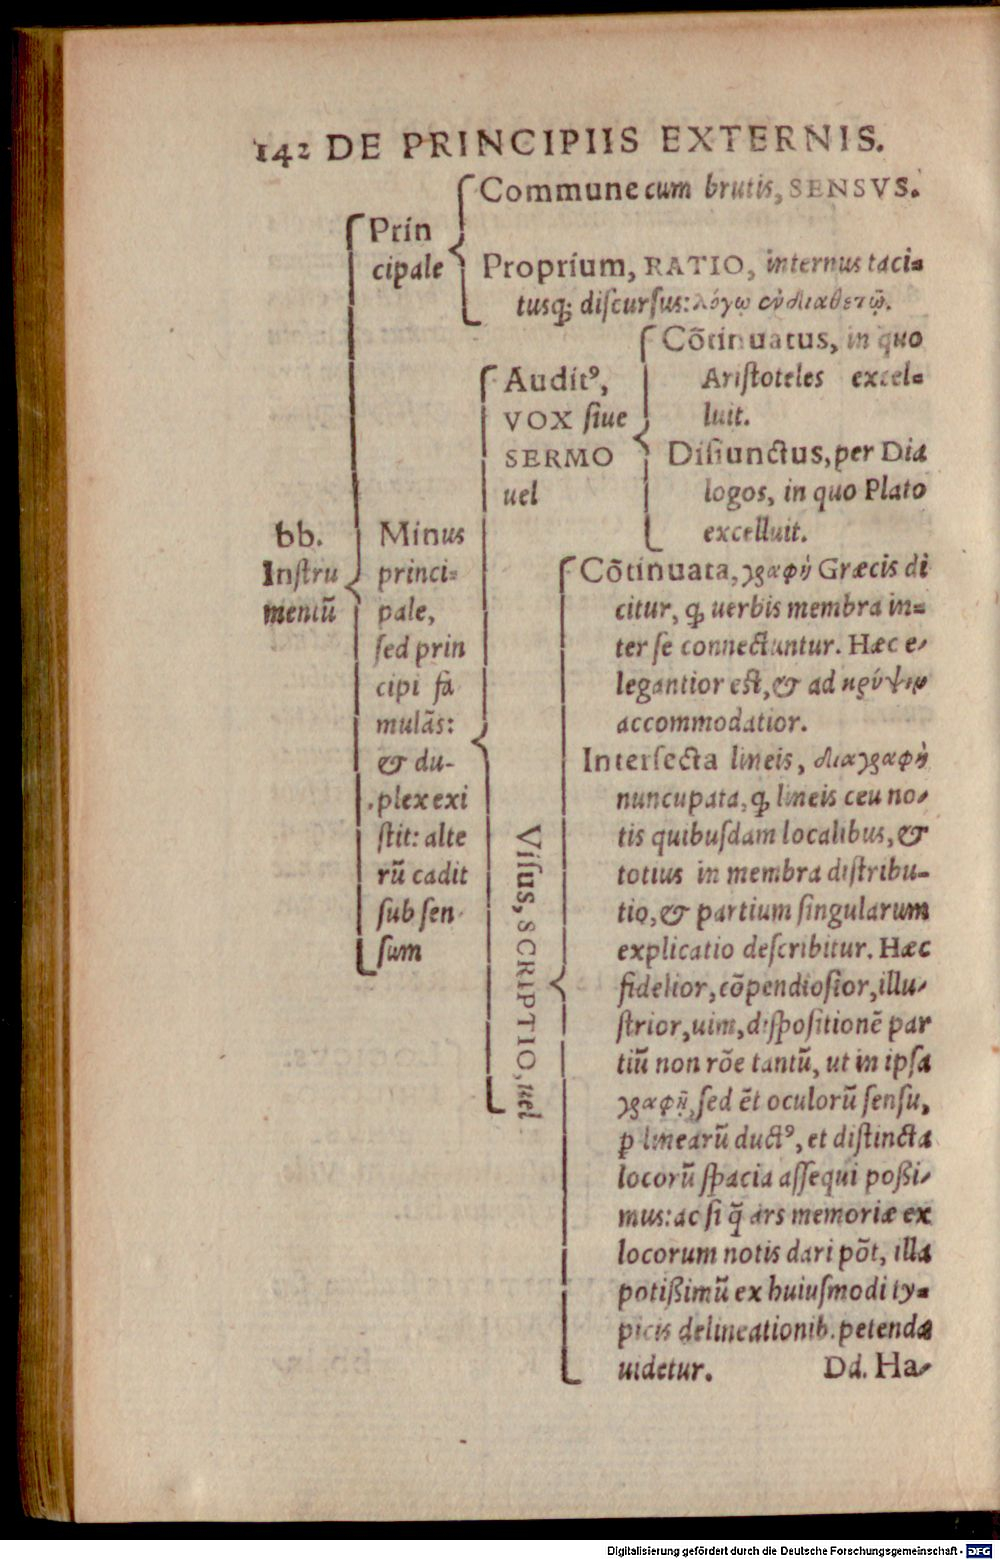 142 DE PRINCIPIIS EXTERNIS.
bb.
Inſtru
mentũ
Prin
cipale
Commune cum brutis, SENSVS.
Proprium, RATIO, internus taci-
tusq; diſcurſus: λόγῳ ἐνδιαθετῷ.
Minus
princi-
pale,
ſed prin
cipi fa
mulãs:
& du-
plex exi
ſtit: alte
rũ cadit
ſub ſen
ſum
Audit⁹,
VOX ſiue
SERMO
uel
Cõtinuatus, in quo
Ariſtoteles excel-
luit.
Diſiunctus, per Dia
logos, in quo Plato
excelluit.
Viſus, SCRIPTIO, uel
Cõtinuata, γραφὴ Græcis di
citur, ꝙ uerbis membra in-
ter ſe connectuntur. Hæc e-
legantior eſt, & ad κρύψιν
accommodatior.
Interſecta lineis, διαγραφὴ
nuncupata, ꝙ lineis ceu no-
tis quibuſdam localibus, &
totius in membra diſtribu-
tio, & partium ſingularum
explicatio deſcribitur. Hæc
fidelior, cõpendioſior, illu-
ſtrior, uim, diſpoſitionẽ par
tiũ non rõe tantũ, ut in ipſa
γραφῇ, ſed ẽt oculorũ ſenſu,
ꝑ linearũ duct⁹, et diſtincta
locorũ ſpacia aſſequi poßi-
mus: ac ſi q̃ ars memoriæ ex
locorum notis dari põt, illa
potißimũ ex huiuſmodi ty-
picis delineationib. petenda
uidetur. Dd. Ha-
Digitalisierung gefördert durch die Deutsche Forschungsgemeinschaft - DFG